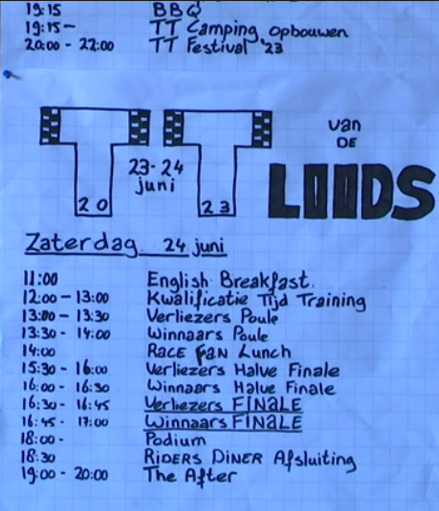 19:15 BBQ
19:15- TT Camping opbouwen
20:00 - 22:00 TT Festival '23
TT
23-24
juni
20 23
van
DE
LOODS
Zaterdag 24 juni
11:00 English Breakfast.
12:00 - 13:00 Kwalificatie Tijd Training
13:00 - 13:30 Verliezers Poule
13:30 - 14:00 Winnaars Poule
14:00 RACE FAN Lunch
15:30 - 16:00 Verliezers Halve Finale
16:00 - 16:30 Winnaars Halve Finale
16:30 - 16:45 Verliezers FINALE
16:45 - 17:00 Winnaars FINALE
18:00 - Podium
18:30 RIDERS DINER Afsluiting
19:00 - 20:00 The After